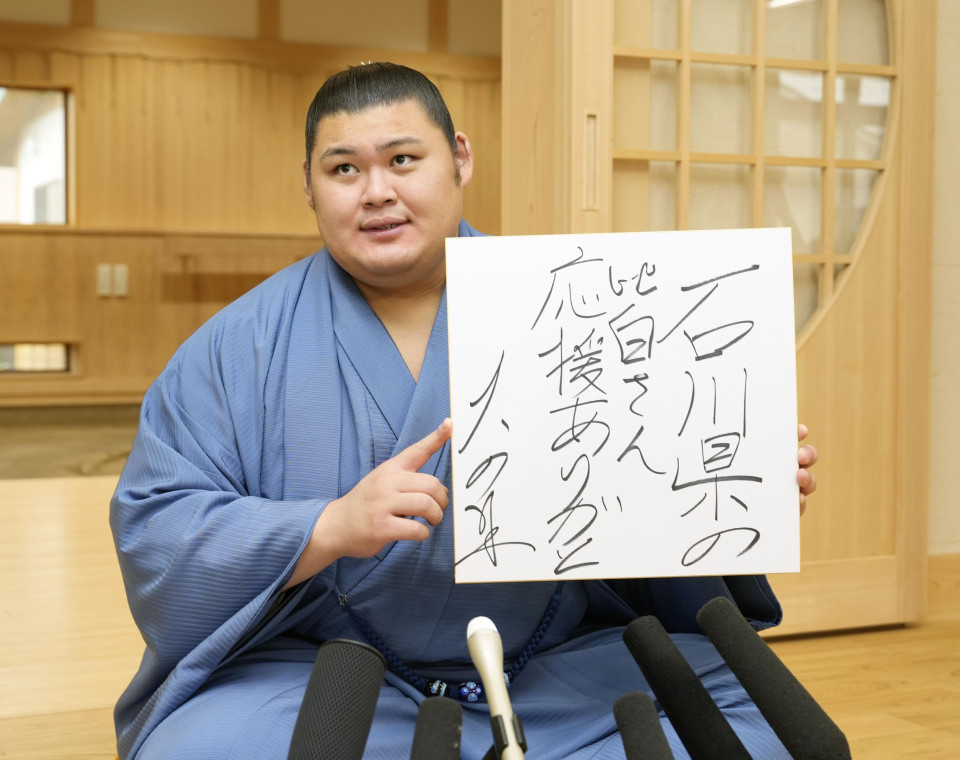 石川県の
皆さん
応援ありがと
大の里